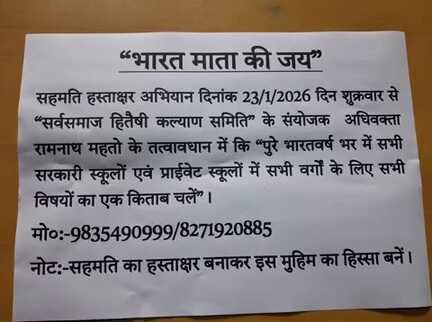 “भारत माता की जय”
सहमति हस्ताक्षर अभियान दिनांक 23/1/2026 दिन शुक्रवार से
“सर्वसमाज हितैषी कल्याण समिति” के संयोजक अधिवक्ता
रामनाथ महतो के तत्वावधान में कि “पुरे भारतवर्ष भर में सभी
सरकारी स्कूलों एवं प्राईवेट स्कूलों में सभी वर्गों के लिए सभी
विषयों का एक किताब चलें”।
मो०:-9835490999/8271920885
नोट:-सहमति का हस्ताक्षर बनाकर इस मुहिम का हिस्सा बनें।